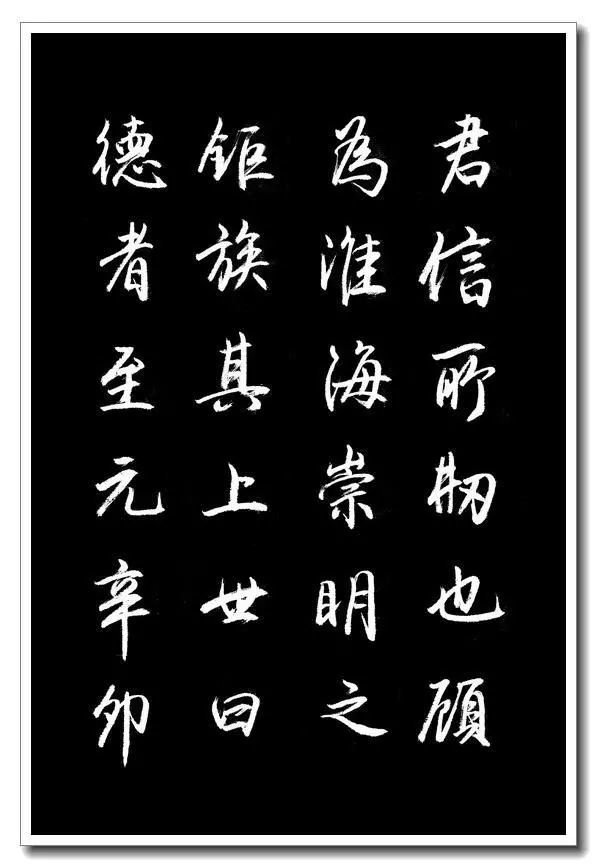 君信所剏也顾
為淮海崇明之
鉅族其上世曰
德者至元辛卯